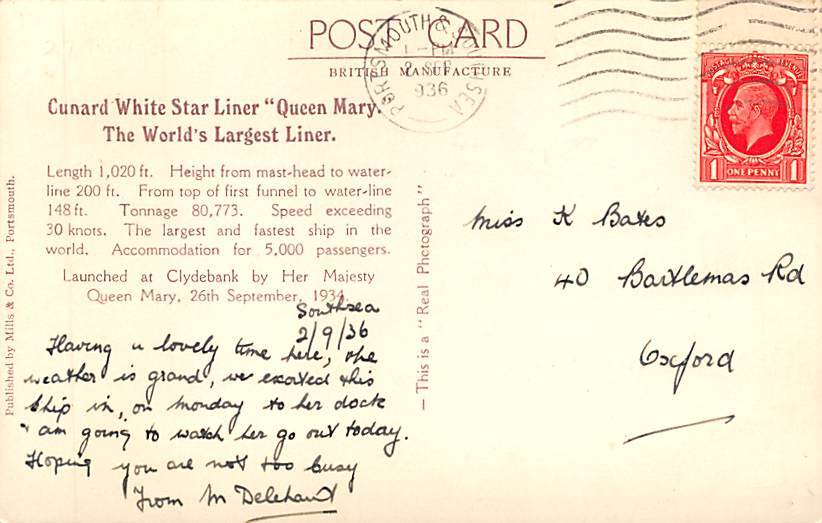 POST CARD
BRITISH MANUFACTURE
PORTSMOUTH & SOUTHSEA
1 - PM
2 SEP
1936
Cunard White Star Liner "Queen Mary."
The World's Largest Liner.
Length 1,020 ft. Height from mast-head to water-
line 200 ft. From top of first funnel to water-line
148 ft. Tonnage 80,773. Speed exceeding
30 knots. The largest and fastest ship in the
world. Accommodation for 5,000 passengers.
Launched at Clydebank by Her Majesty
Queen Mary, 26th September, 1934.
Southsea
2/9/36
Having a lovely time here, the
weather is grand, we escorted this
ship in, on Monday to her dock
am going to watch her go out today.
Hoping you are not too busy
From M Delehant
Published by Mills & Co. Ltd., Portsmouth.
— This is a "Real Photograph"
POSTAGE REVENUE
1 ONE PENNY 1
Miss K Bates
40 Bartlemas Rd
Oxford